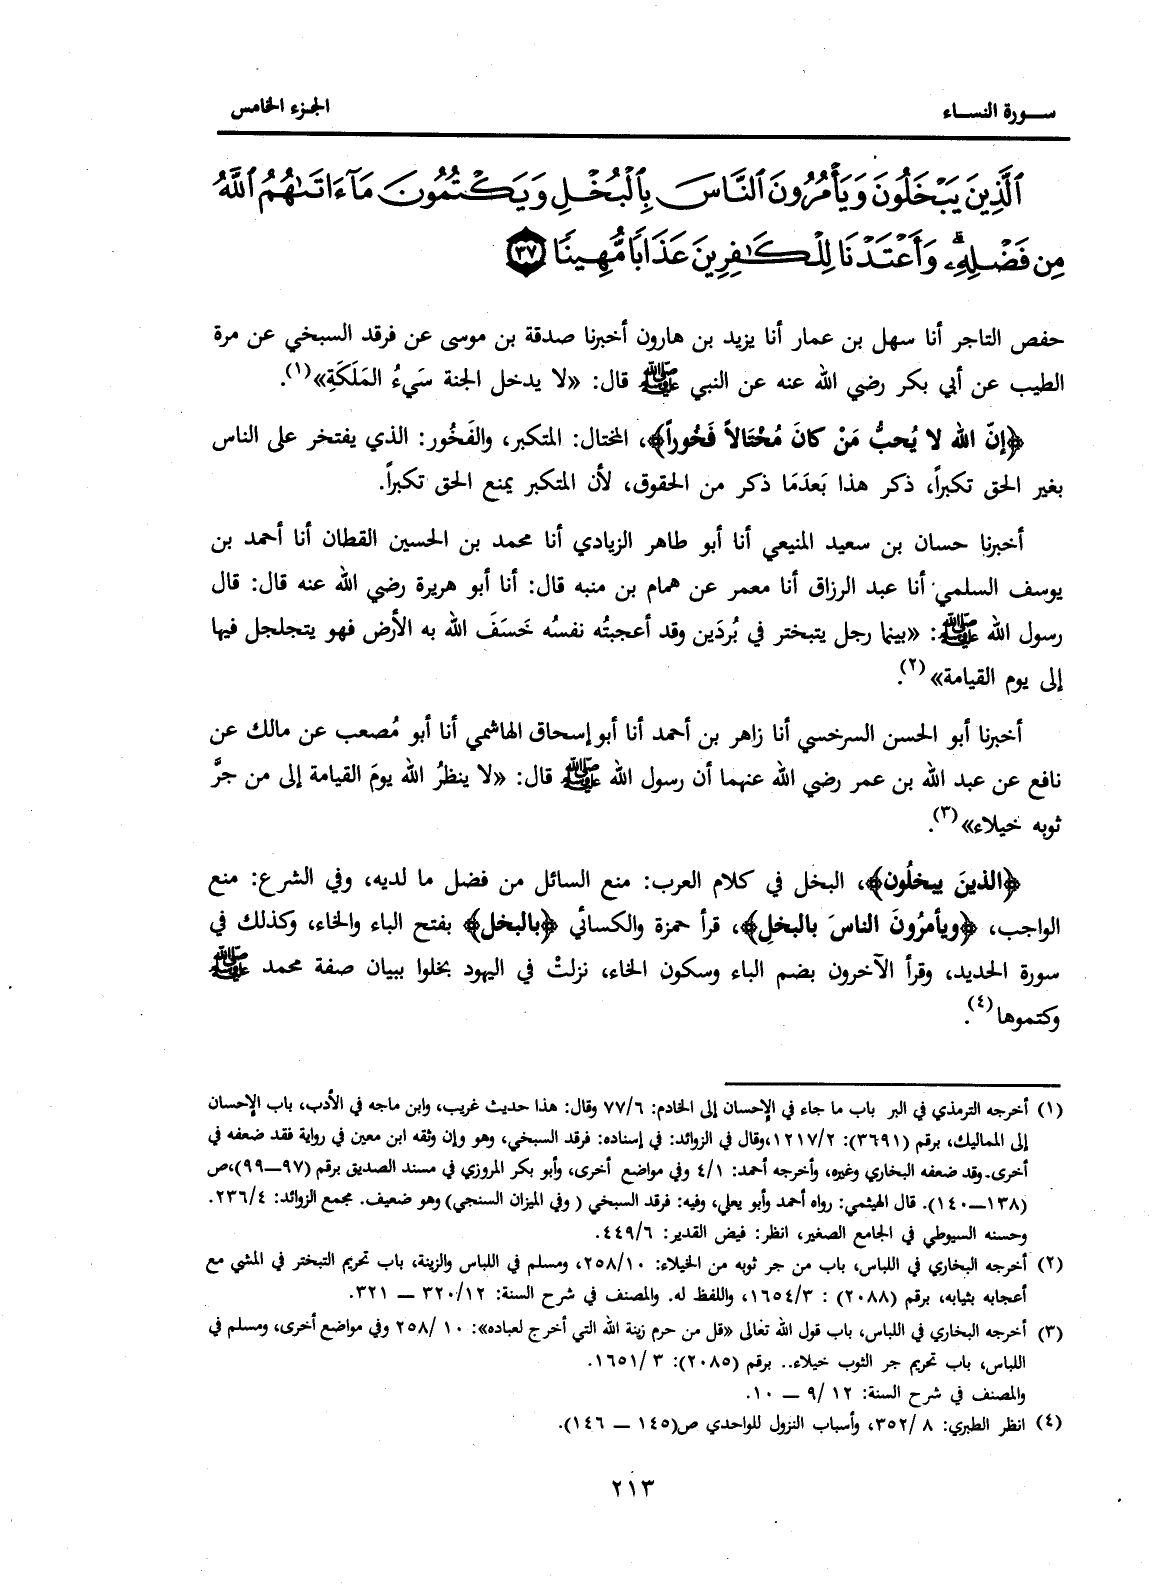 ســورة النســاء
الجزء الخامس
ٱلَّذِينَ يَبۡخَلُونَ وَيَأۡمُرُونَ ٱلنَّاسَ بِٱلۡبُخۡلِ وَيَكۡتُمُونَ مَآءَاتَىٰهُمُ ٱللَّهُ
مِن فَضۡلِهِۦۗ وَأَعۡتَدۡنَا لِلۡكَٰفِرِينَ عَذَابًا مُّهِينًا ٣٧
حفص التاجر أنا سهل بن عمار أنا يزيد بن هارون أخبرنا صدقة بن موسى عن فرقد السبخي عن مرة
الطيب عن أبي بكر رضي الله عنه عن النبي ﷺ قال: «لا يدخل الجنة سَيءُ المَلَكَةِ»(١).
﴿إنّ الله لا يُحبُّ مَنْ كانَ مُخْتالاً فَخُوراً﴾، المختال: المتكبر، والفَخُور: الذي يفتخر على الناس
بغير الحق تكبراً، ذكر هذا بَعدَمَا ذكر من الحقوق، لأن المتكبر يمنع الحق تكبراً.
أخبرنا حسان بن سعيد المنيعي أنا أبو طاهر الزيادي أنا محمد بن الحسين القطان أنا أحمد بن
يوسف السلمي أنا عبد الرزاق أنا معمر عن همام بن منبه قال: أنا أبو هريرة رضي الله عنه قال: قال
رسول الله ﷺ: «بينما رجل يتبختر في بُردَين وقد أعجبتُه نفسُه خَسَفَ الله به الأرض فهو يتجلجل فيها
إلى يوم القيامة»(٢).
أخبرنا أبو الحسن السرخسي أنا زاهر بن أحمد أنا أبو إسحاق الهاشمي أنا أبو مُصعب عن مالك عن
نافع عن عبد الله بن عمر رضي الله عنهما أن رسول الله ﷺ قال: «لا ينظرُ الله يومَ القيامة إلى من جرَّ
ثوبه خيلاء»(٣).
﴿الذينَ يبخلُون﴾، البخل في كلام العرب: منع السائل من فضل ما لديه، وفي الشرع: منع
الواجب، ﴿ويأمرُونَ الناسَ بالبخلِ﴾، قرأ حمزة والكسائي ﴿بالبخل﴾ بفتح الباء والخاء، وكذلك في
سورة الحديد، وقرأ الآخرون بضم الباء وسكون الخاء، نزلتْ في اليهود بخلوا ببيان صفة محمد ﷺ
وكتموها(٤).
(١) أخرجه الترمذي في البر باب ما جاء في الإحسان إلى الخادم: ٧٧/٦ وقال: هذا حديث غريب، وابن ماجه في الأدب، باب الإحسان
إلى المماليك، برقم (٣٦٩١): ١٢١٧/٢،وقال في الزوائد: في إسناده: فرقد السبخي، وهو وإن وثقه ابن معين في رواية فقد ضعفه في
أخرى. وقد ضعفه البخاري وغيره، وأخرجه أحمد: ٤/١ وفي مواضع أخرى، وأبو بكر المروزي في مسند الصديق برقم (٩٧—٩٩)،ص
(١٣٨—١٤٠). قال الهيثمي: رواه أحمد وأبو يعلي، وفيه: فرقد السبخي ( وفي الميزان السنجي) وهو ضعيف. مجمع الزوائد: ٢٣٦/٤.
وحسنه السيوطي في الجامع الصغير، انظر: فيض القدير: ٤٤٩/٦.
(٢) أخرجه البخاري في اللباس، باب من جر ثوبه من الخيلاء: ٢٥٨/١٠، ومسلم في اللباس والزينة، باب تحريم التبختر في المشي مع
أعجابه بثيابه، برقم (٢٠٨٨) : ١٦٥٤/٣، واللفظ له. والمصنف في شرح السنة: ٣٢٠/١٢ — ٣٢١.
(٣) أخرجه البخاري في اللباس، باب قول الله تعالى «قل من حرم زينة الله التي أخرج لعباده»: ١٠ /٢٥٨ وفي مواضع أخرى، ومسلم في
اللباس، باب تحريم جر الثوب خيلاء.. برقم (٢٠٨٥): ٣ /١٦٥١.
والمصنف في شرح السنة: ١٢ /٩ — ١٠.
(٤) انظر الطبري: ٨ /٣٥٢، وأسباب النزول للواحدي ص(١٤٥ — ١٤٦).
٢١٣